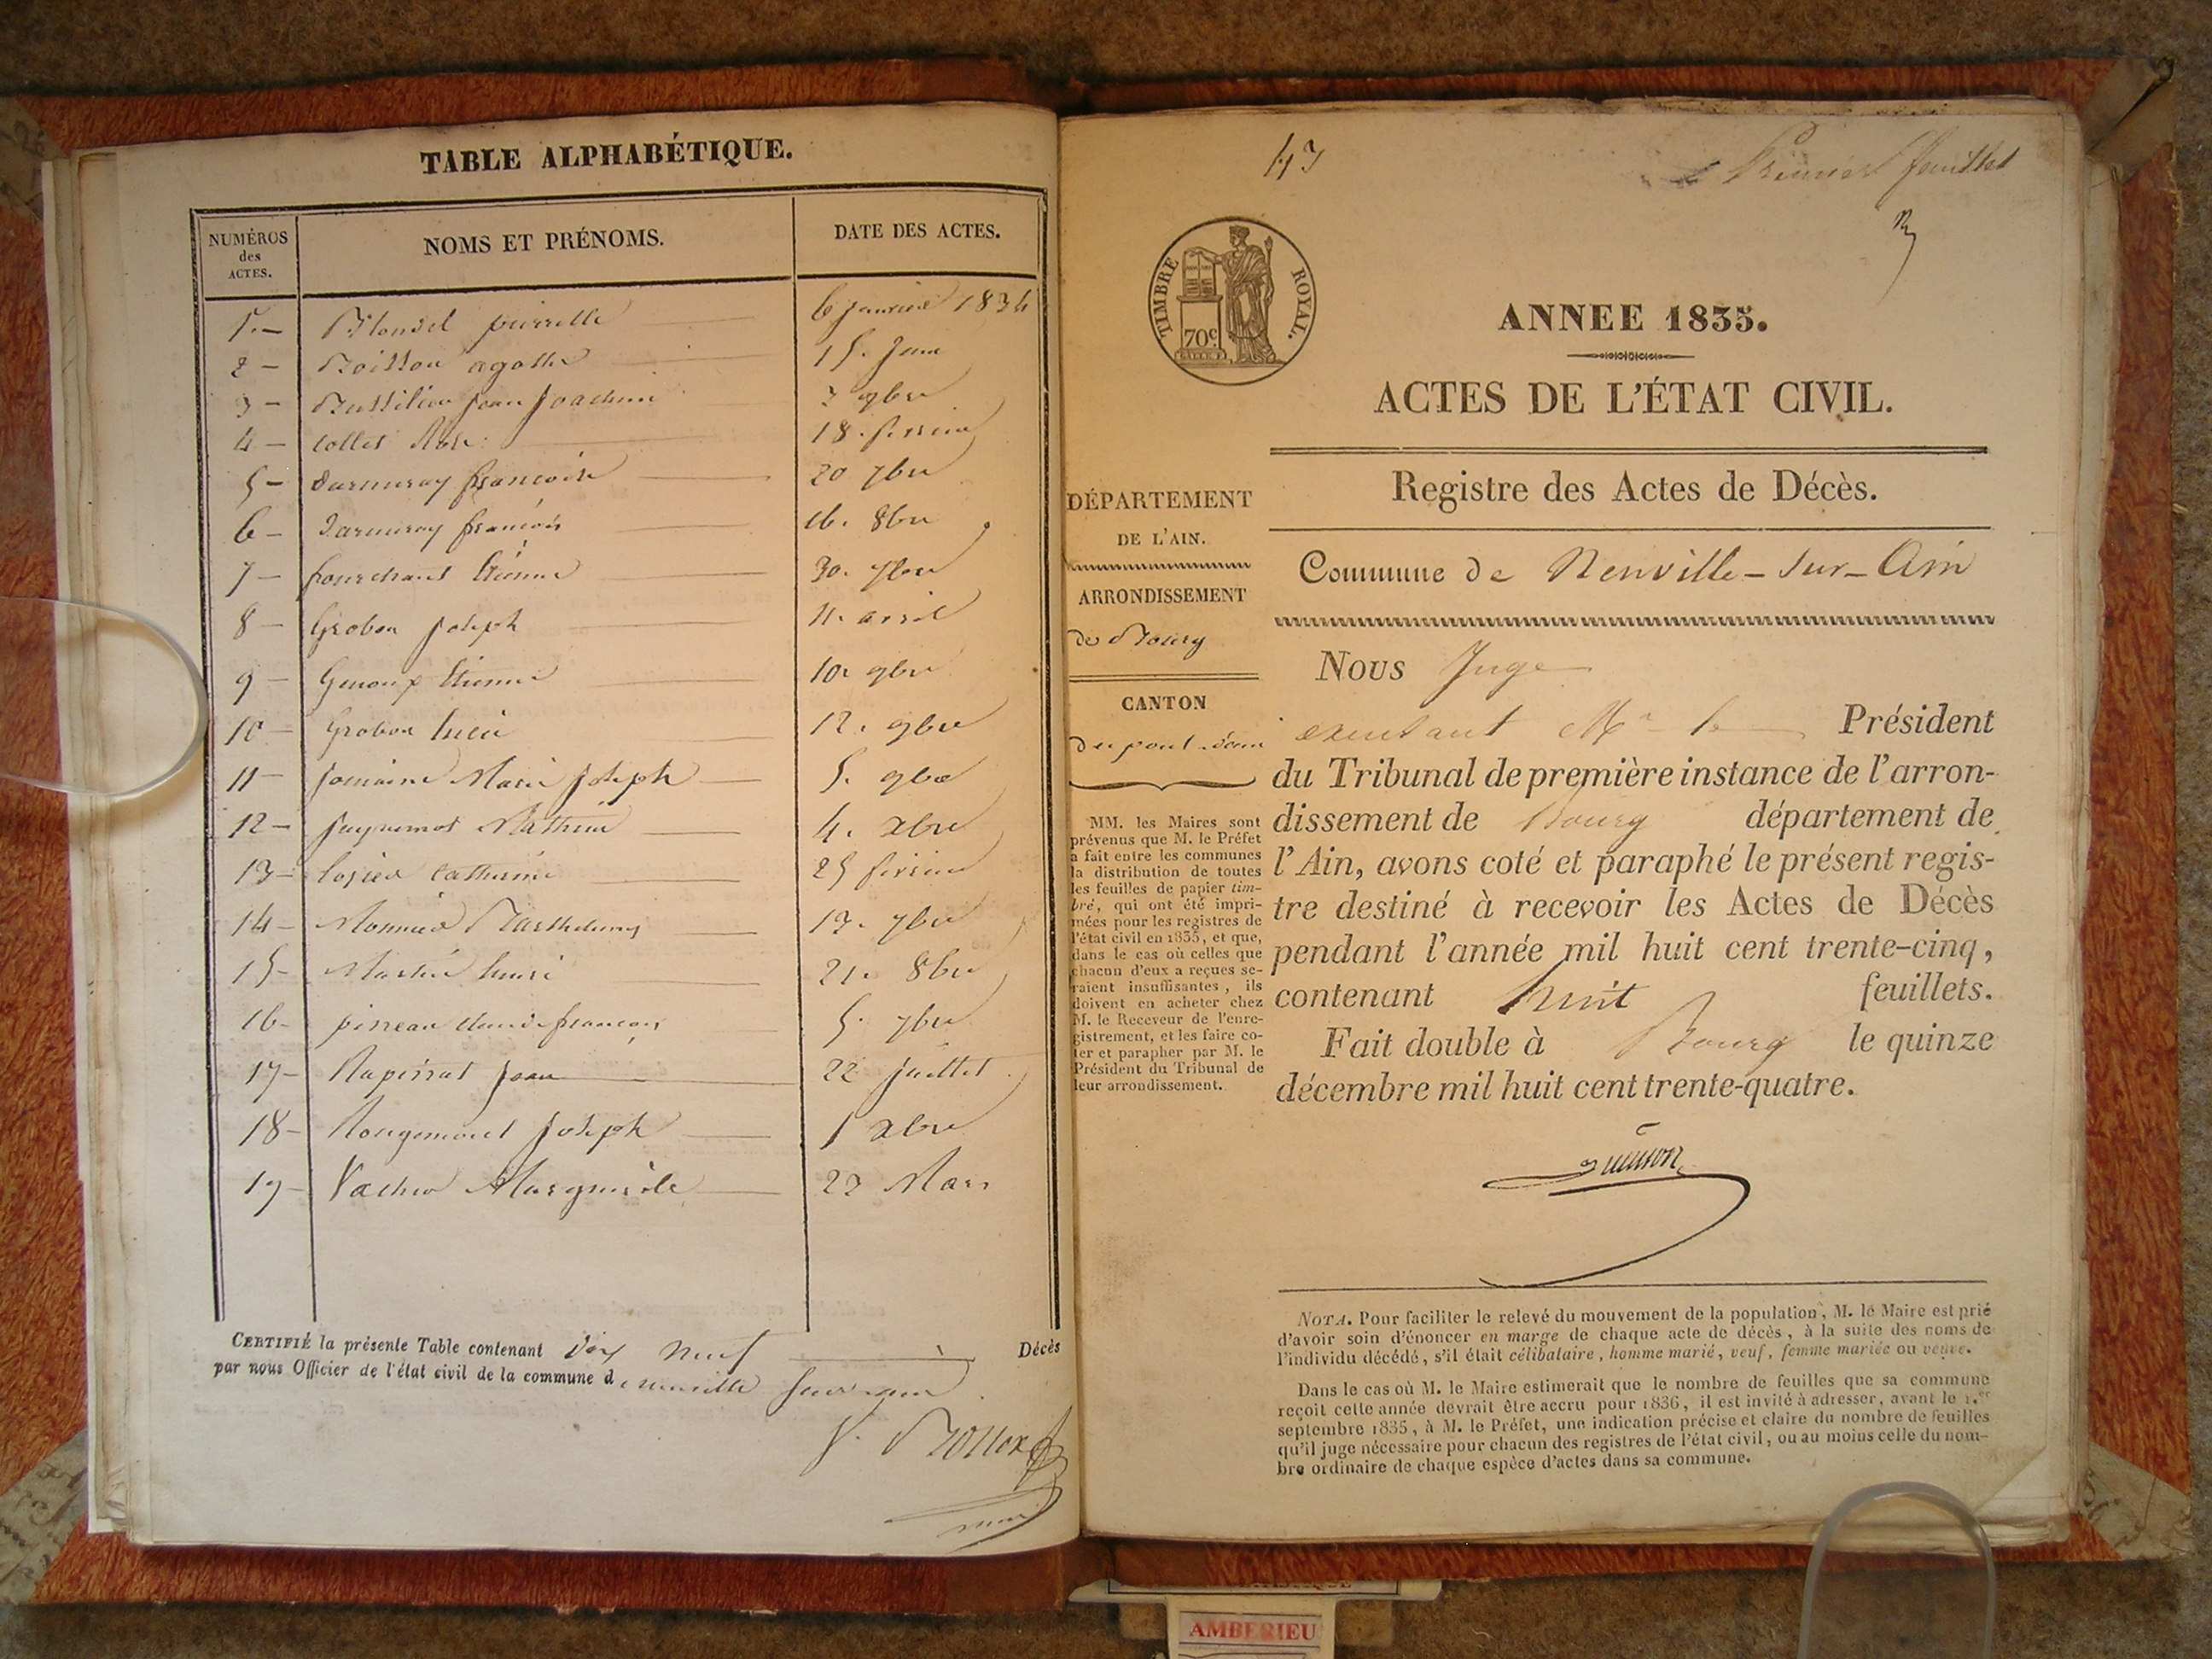 TABLE ALPHABÉTIQUE.
NUMÉROS des ACTES.
NOMS ET PRÉNOMS.
DATE DES ACTES.
1. — Blondel pierrette 6 janvier 1834
2 — Boisson agathe 15. Juin
3 — Bussilion Jean Joachim 3 9bre
4 — Collet Rose 18. fevrier
5 — Darmeray françoise 20 7bre
6 — Darmeray françois 16. 8bre
7 — fourchant Etienne 30. 7bre
8 — Grobon Joseph 11. avril
9 — Genoux Etienne 10. 9bre
10 — Grobon 12. 9bre
11 — Jomain Marie Joseph 5. 9bre
12 — Juquemot 4. xbre
13 — catherine 25 fevrier
14 — Monnier Barthelemy 13. 7bre
15 — 21. 8bre
16 — pineau claude françois 5. 7bre
17 — Jean 22 juillet
18 — Rougemont Joseph 1 xbre
19 — Vacher Marguerite 23 Mars
CERTIFIÉ la présente Table contenant Dix Neuf Décès
par nous Officier de l'état civil de la commune de neuville sur ain
47
Premier feuillet
TIMBRE ROYAL.
70c.
ANNEE 1835.
ACTES DE L'ÉTAT CIVIL.
Registre des Actes de Décès.
DÉPARTEMENT
DE L'AIN.
ARRONDISSEMENT
de Bourg
CANTON
du pont-d'ain
MM. les Maires sont
prévenus que M. le Préfet
a fait entre les communes
la distribution de toutes
les feuilles de papier tim-
bré, qui ont été impri-
mées pour les registres de
l'état civil en 1835, et que,
dans le cas où celles que
chacun d'eux a reçues se-
raient insuffisantes, ils
doivent en acheter chez
M. le Receveur de l'enre-
gistrement, et les faire co-
ter et parapher par M. le
Président du Tribunal de
leur arrondissement.
Commune de Neuville-sur-Ain
Nous Juge
Mr le Président
du Tribunal de première instance de l'arron-
dissement de Bourg département de
l'Ain, avons coté et paraphé le présent regis-
tre destiné à recevoir les Actes de Décès
pendant l'année mil huit cent trente-cinq,
contenant huit feuillets.
Fait double à Bourg le quinze
décembre mil huit cent trente-quatre.
NOTA. Pour faciliter le relevé du mouvement de la population, M. le Maire est prié
d'avoir soin d'énoncer en marge de chaque acte de décès, à la suite des noms de
l'individu décédé, s'il était célibataire, homme marié, veuf, femme mariée ou veuve.
Dans le cas où M. le Maire estimerait que le nombre de feuilles que sa commune
reçoit cette année devrait être accru pour 1836, il est invité à adresser, avant le 1.er
septembre 1835, à M. le Préfet, une indication précise et claire du nombre de feuilles
qu'il juge nécessaire pour chacun des registres de l'état civil, ou au moins celle du nom-
bre ordinaire de chaque espèce d'actes dans sa commune.
AMBERIEU